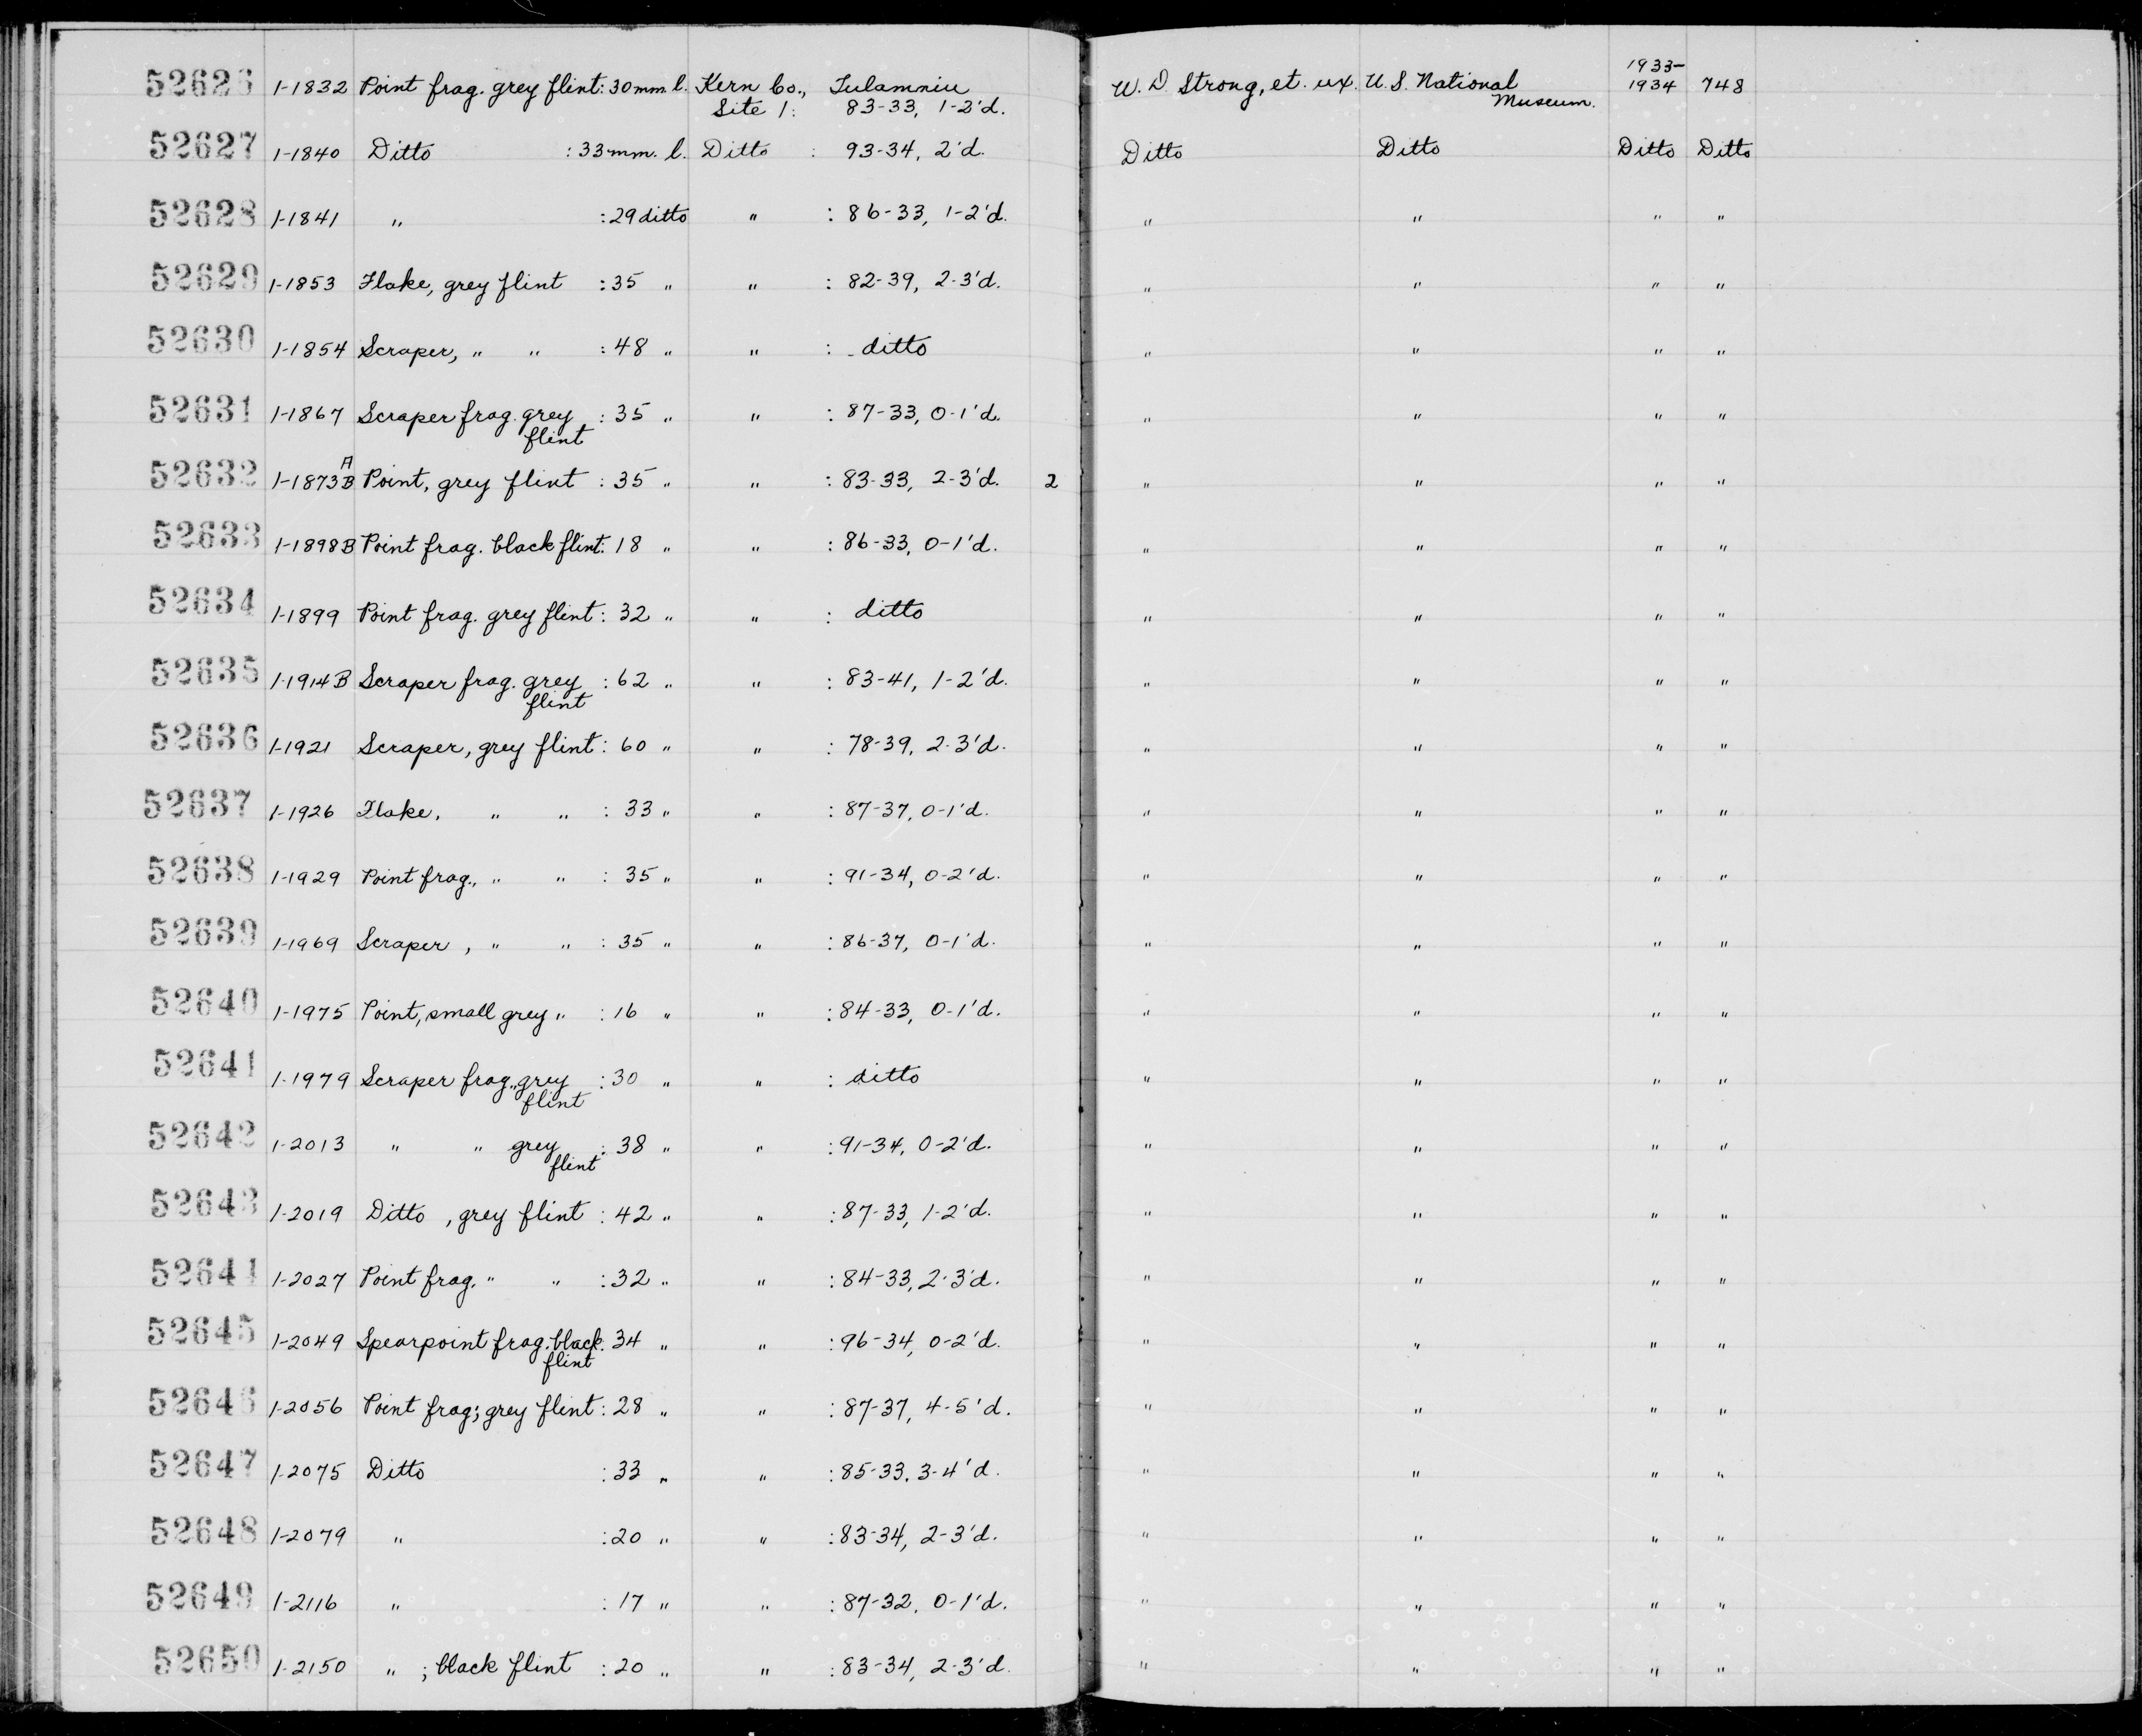 52626 1-1832 Point frag. grey flint: 30mm l. Kern Co., Tulamniu W. D. Strong, et. ux. U.S. National 1933- 748
Site 1: 83-33, 1-2'd. Museum. 1934
52627 1-1840 Ditto : 33mm. l. Ditto : 93-34, 2'd. Ditto Ditto Ditto Ditto
52628 1-1841 " : 29 ditto " : 86-33, 1-2'd. " " " "
52629 1-1853 Flake, grey flint : 35 " " : 82-39, 2-3'd. " " " "
52630 1-1854 Scraper, " " : 48 " " : ditto " " " "
52631 1-1867 Scraper frag. grey : 35 " " : 87-33, 0-1'd. " " " "
flint
52632 1-1873 A B Point, grey flint : 35 " " : 83-33, 2-3'd. 2 " " " "
52633 1-1898B Point frag. black flint: 18 " " : 86-33, 0-1'd. " " " "
52634 1-1899 Point frag. grey flint: 32 " " : ditto " " " "
52635 1-1914B Scraper frag. grey : 62 " " : 83-41, 1-2'd. " " " "
flint
52636 1-1921 Scraper, grey flint: 60 " " : 78-39, 2-3'd. " " " "
52637 1-1926 Flake, " " : 33 " " : 87-37, 0-1'd. " " " "
52638 1-1929 Point frag., " " : 35 " " : 91-34, 0-2'd. " " " "
52639 1-1969 Scraper, " " : 35 " " : 86-37, 0-1'd. " " " "
52640 1-1975 Point, small grey " : 16 " " : 84-33, 0-1'd. " " " "
52641 1-1979 Scraper frag., grey : 30 " " : ditto " " " "
flint
52642 1-2013 " " grey : 38 " " : 91-34, 0-2'd. " " " "
flint
52643 1-2019 Ditto , grey flint : 42 " " : 87-33, 1-2'd. " " " "
52644 1-2027 Point frag. " " : 32 " " : 84-33, 2-3'd. " " " "
52645 1-2049 Spearpoint frag. black: 34 " " : 96-34, 0-2'd. " " " "
flint
52646 1-2056 Point frag; grey flint: 28 " " : 87-37, 4-5'd. " " " "
52647 1-2075 Ditto : 33 " " : 85-33, 3-4'd. " " " "
52648 1-2079 " : 20 " " : 83-34, 2-3'd. " " " "
52649 1-2116 " : 17 " " : 87-32, 0-1'd. " " " "
52650 1-2150 " ; black flint : 20 " " : 83-34, 2-3'd. " " " "